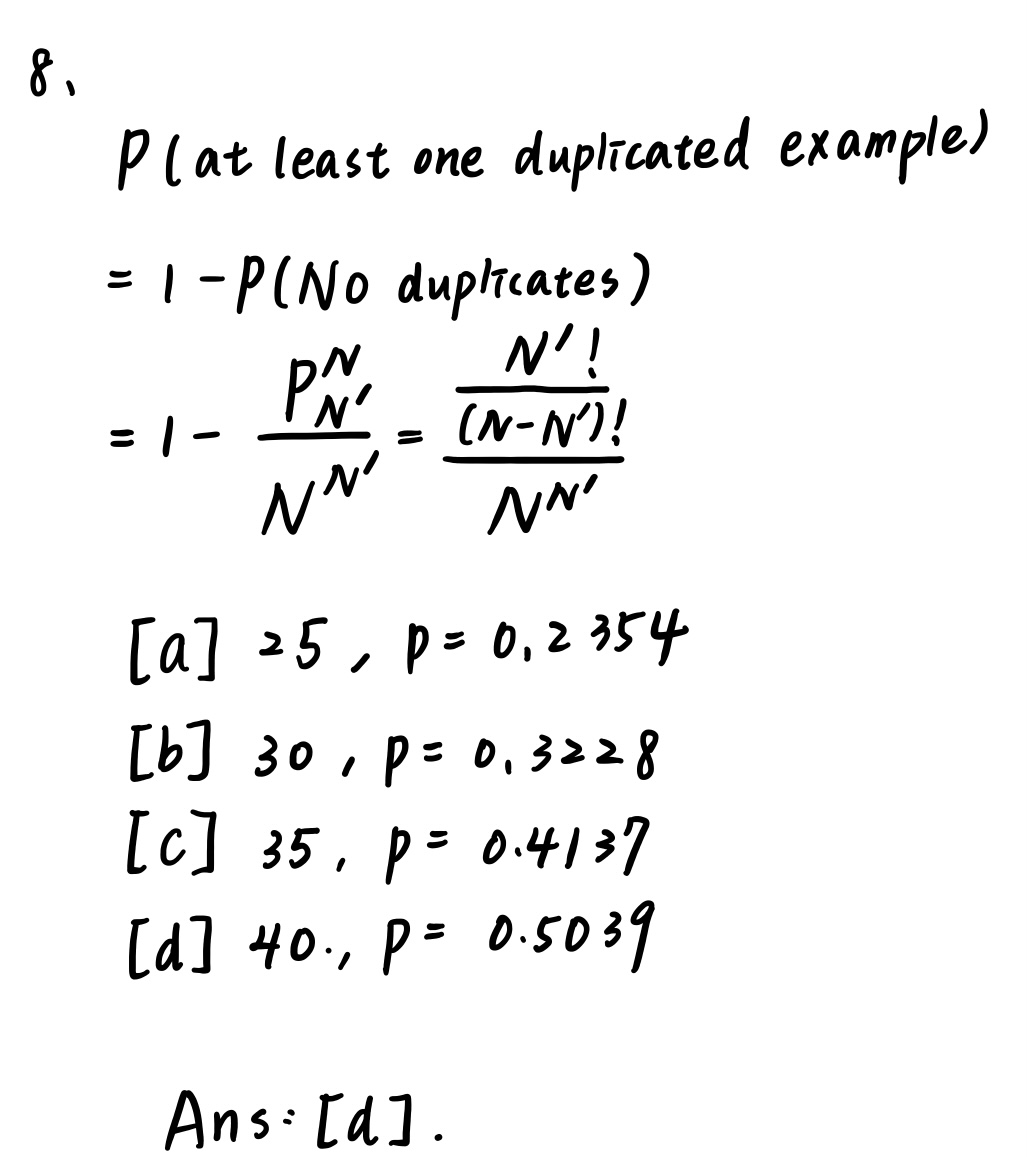 8、
P(at least one duplicated example)
= 1 - P(No duplicates)
= 1 - P^N_N' / N^N' = (N'! / (N-N')!) / N^N'
[a] 25, p = 0.2354
[b] 30, p = 0.3228
[c] 35, p = 0.4137
[d] 40., p = 0.5039
Ans: [d].